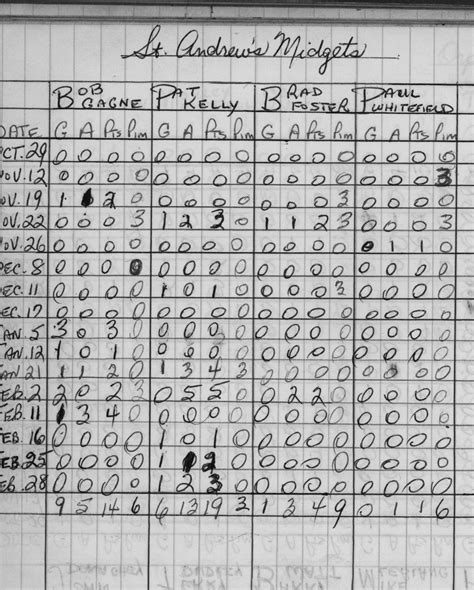 St. Andrew's Midgets
BOB GAGNE PAT KELLY BRAD FOSTER PAUL WHITEFIELD
DATE G A Pts Pim G A Pts Pim G A Pts Pim G A Pts Pim
OCT.29 0 0 0 0 0 0 0 0 0 0 0 0 0 0 0 0
NOV.12 0 0 0 0 0 0 0 0 0 0 0 0 0 0 0 3
NOV.19 1 1 2 0 0 0 0 0 0 0 0 3 0 0 0 0
NOV.22 0 0 0 3 1 2 3 0 1 1 2 3 0 0 0 0
NOV.26 0 0 0 0 0 0 0 0 0 0 0 0 0 1 1 0
DEC.8 0 0 0 0 0 0 0 0 0 0 0 0 0 0 0 0
DEC.11 0 0 0 0 1 0 1 0 0 0 0 3 0 0 0 0
DEC.17 0 0 0 0 0 0 0 0 0 0 0 0 0 0 0 0
JAN.5 3 0 3 0 0 0 0 0 0 0 0 0 0 0 0 0
JAN.12 1 0 1 0 0 0 0 0 0 0 0 0 0 0 0 0
JAN 21 1 1 2 0 1 3 4 3 0 0 0 0 0 0 0 0
FEB.2 2 0 2 3 0 5 5 0 0 2 2 0 0 0 0 0
FEB.11 1 3 4 0 0 0 0 0 0 0 0 0 0 0 0 0
FEB.16 0 0 0 0 1 0 1 0 0 0 0 0 0 0 0 0
FEB.25 0 0 0 0 1 1 2 0 0 0 0 0 0 0 0 0
FEB.28 0 0 0 0 1 2 3 0 0 0 0 0 0 0 0 0
9 5 14 6 6 13 19 3 1 3 4 9 0 1 1 6